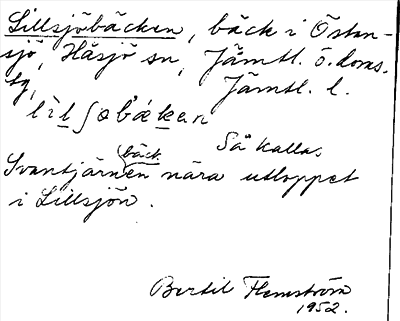 Lillsjöbäcken, bäck i Östan-
sjö, Häsjö sn, Jämtl. ö. doms.
tg, Jämtl. l.
Så kallas
Svantjärnen bäck nära utloppet
i Lillsjön.
Bertil Flemström
1952.